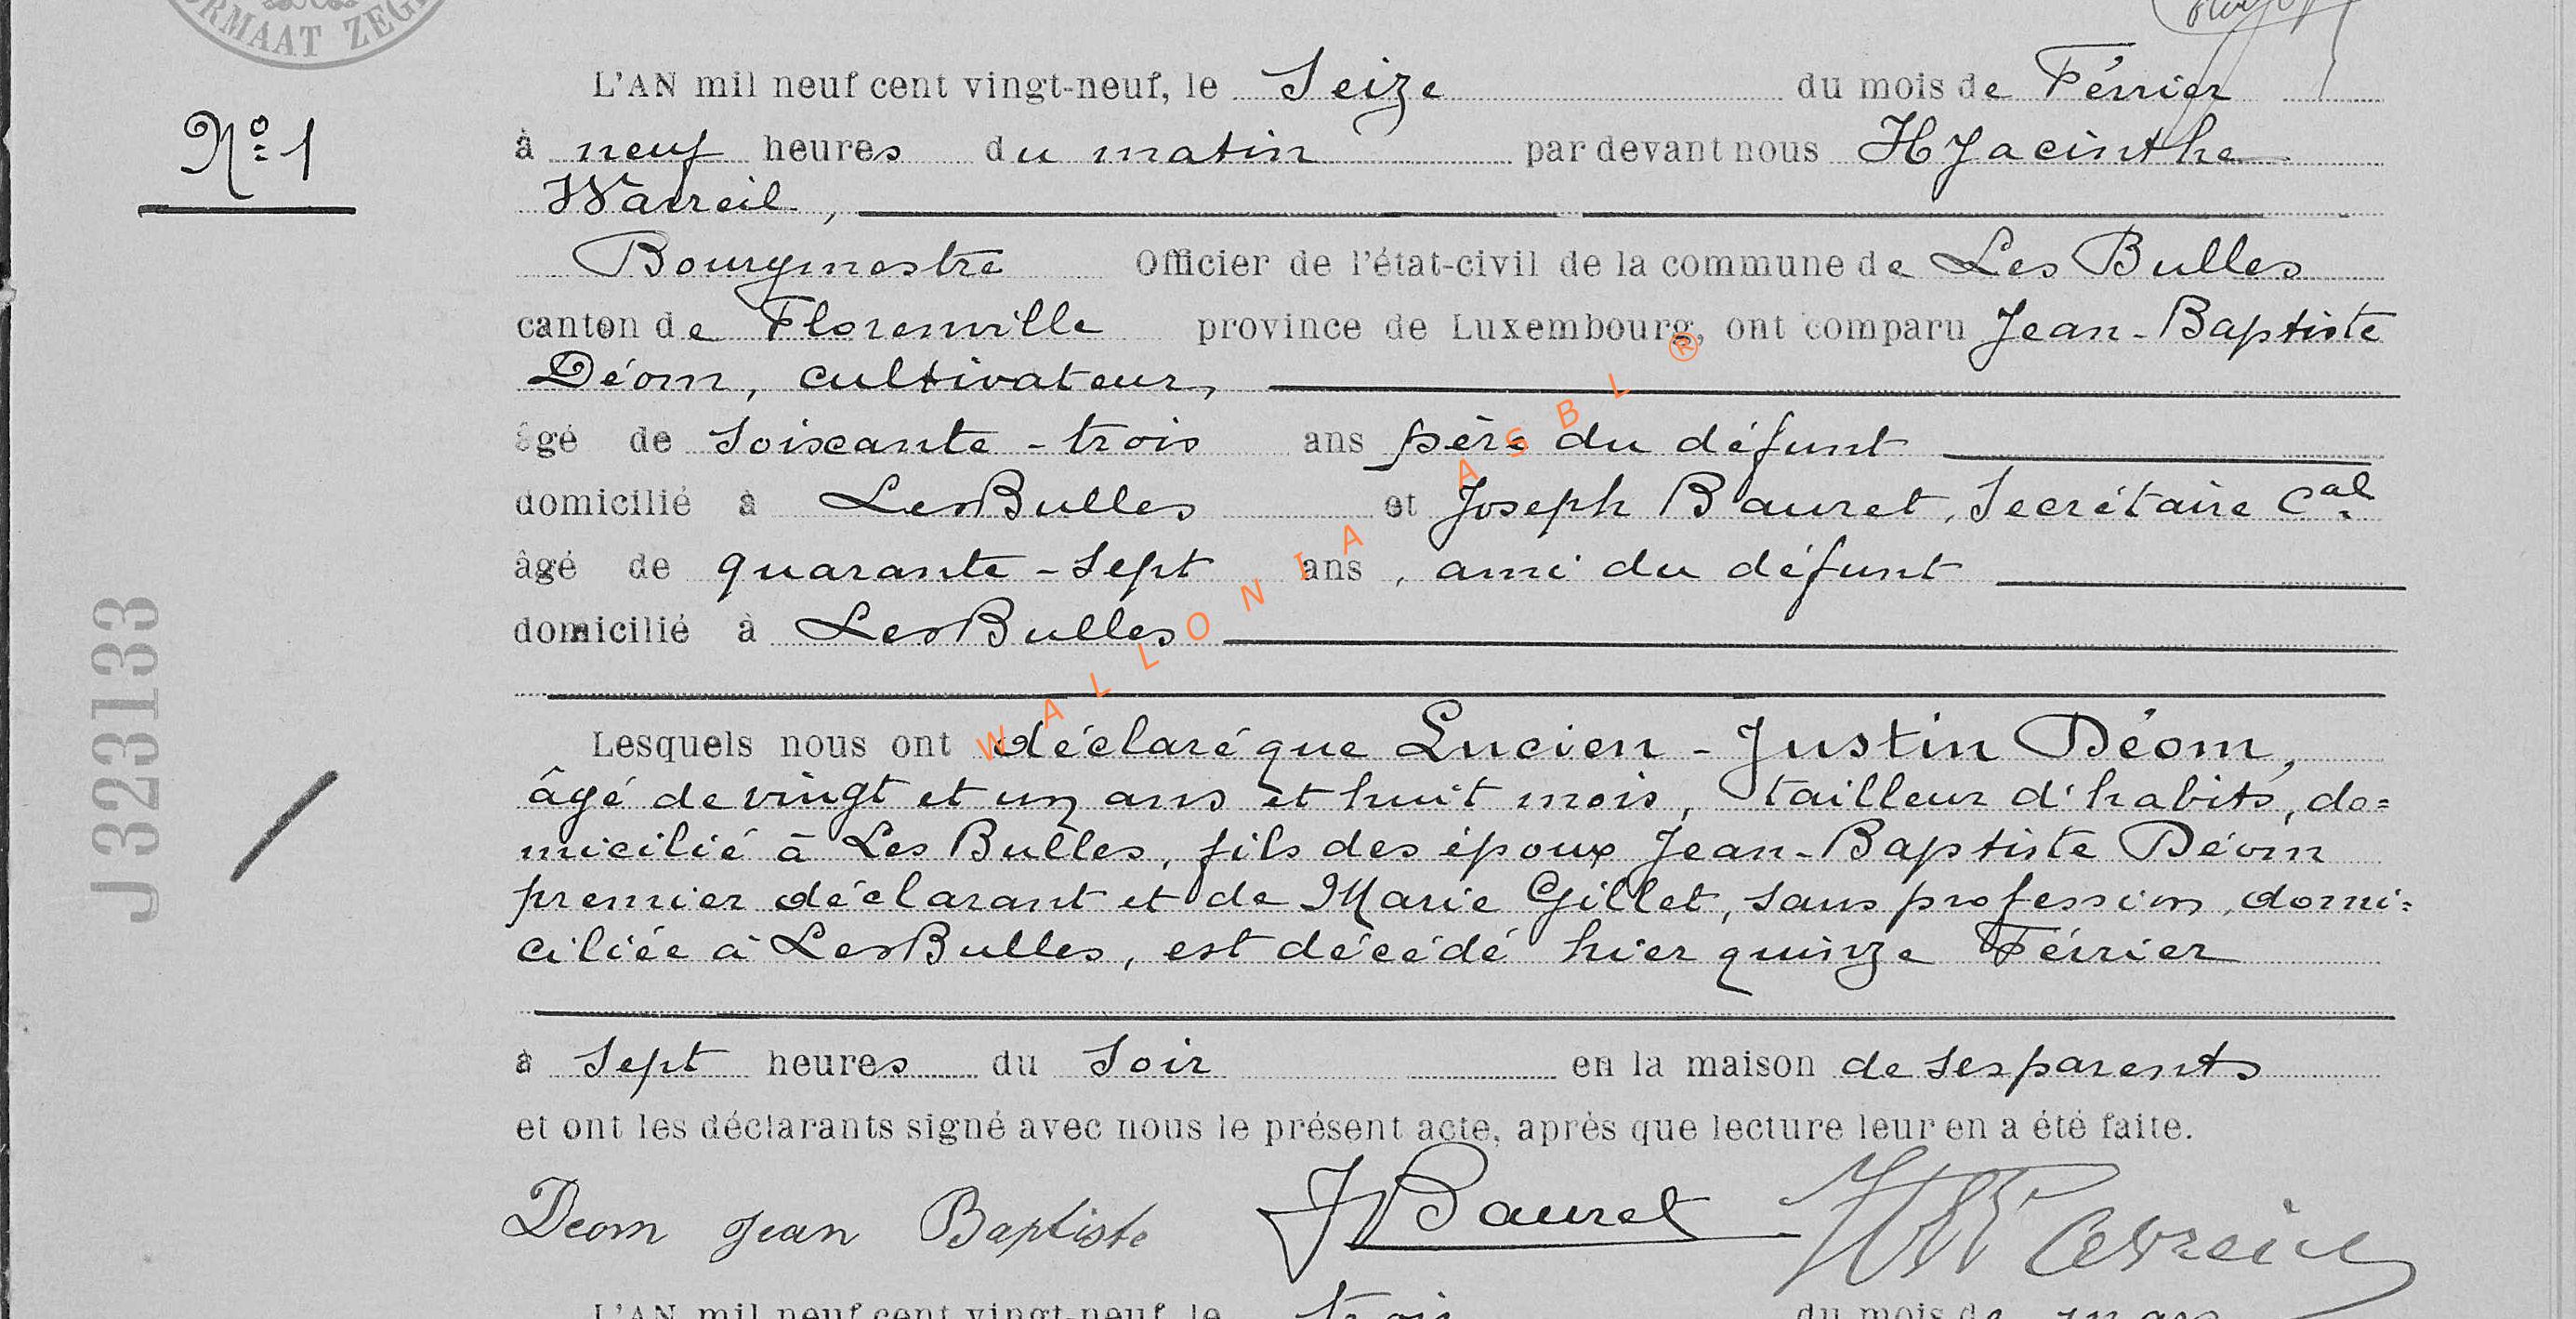 RMAAT ZEG
L'AN mil neuf cent vingt-neuf, le Seize du mois de Février
N° 1
à neuf heures du matin par devant nous Hyacinthe
Watreil,
Bourgmestre Officier de l'état-civil de la commune de Les Bulles
canton de Florenville province de Luxembourg, ont comparu Jean-Baptiste
Déom, cultivateur,
âgé de soixante-trois ans père du défunt
domicilié à Les Bulles et Joseph Bauret, Secrétaire Cal
âgé de quarante-sept ans, ami du défunt
domicilié à Les Bulles
WALLONIA ASBL ®
J 323133
Lesquels nous ont déclaré que Lucien-Justin Déom,
âgé de vingt et un ans et huit mois, tailleur d'habits, do=
micilié à Les Bulles, fils des époux Jean-Baptiste Déom
premier déclarant et de Marie Gillet, sans profession, domi=
ciliée à Les Bulles, est décédé hier quinze Février
à sept heures du soir en la maison de ses parents
et ont les déclarants signé avec nous le présent acte, après que lecture leur en a été faite.
Deom Jean Baptiste J Bauret
L'AN mil neuf cent vingt-neuf, le trois du mois de mars